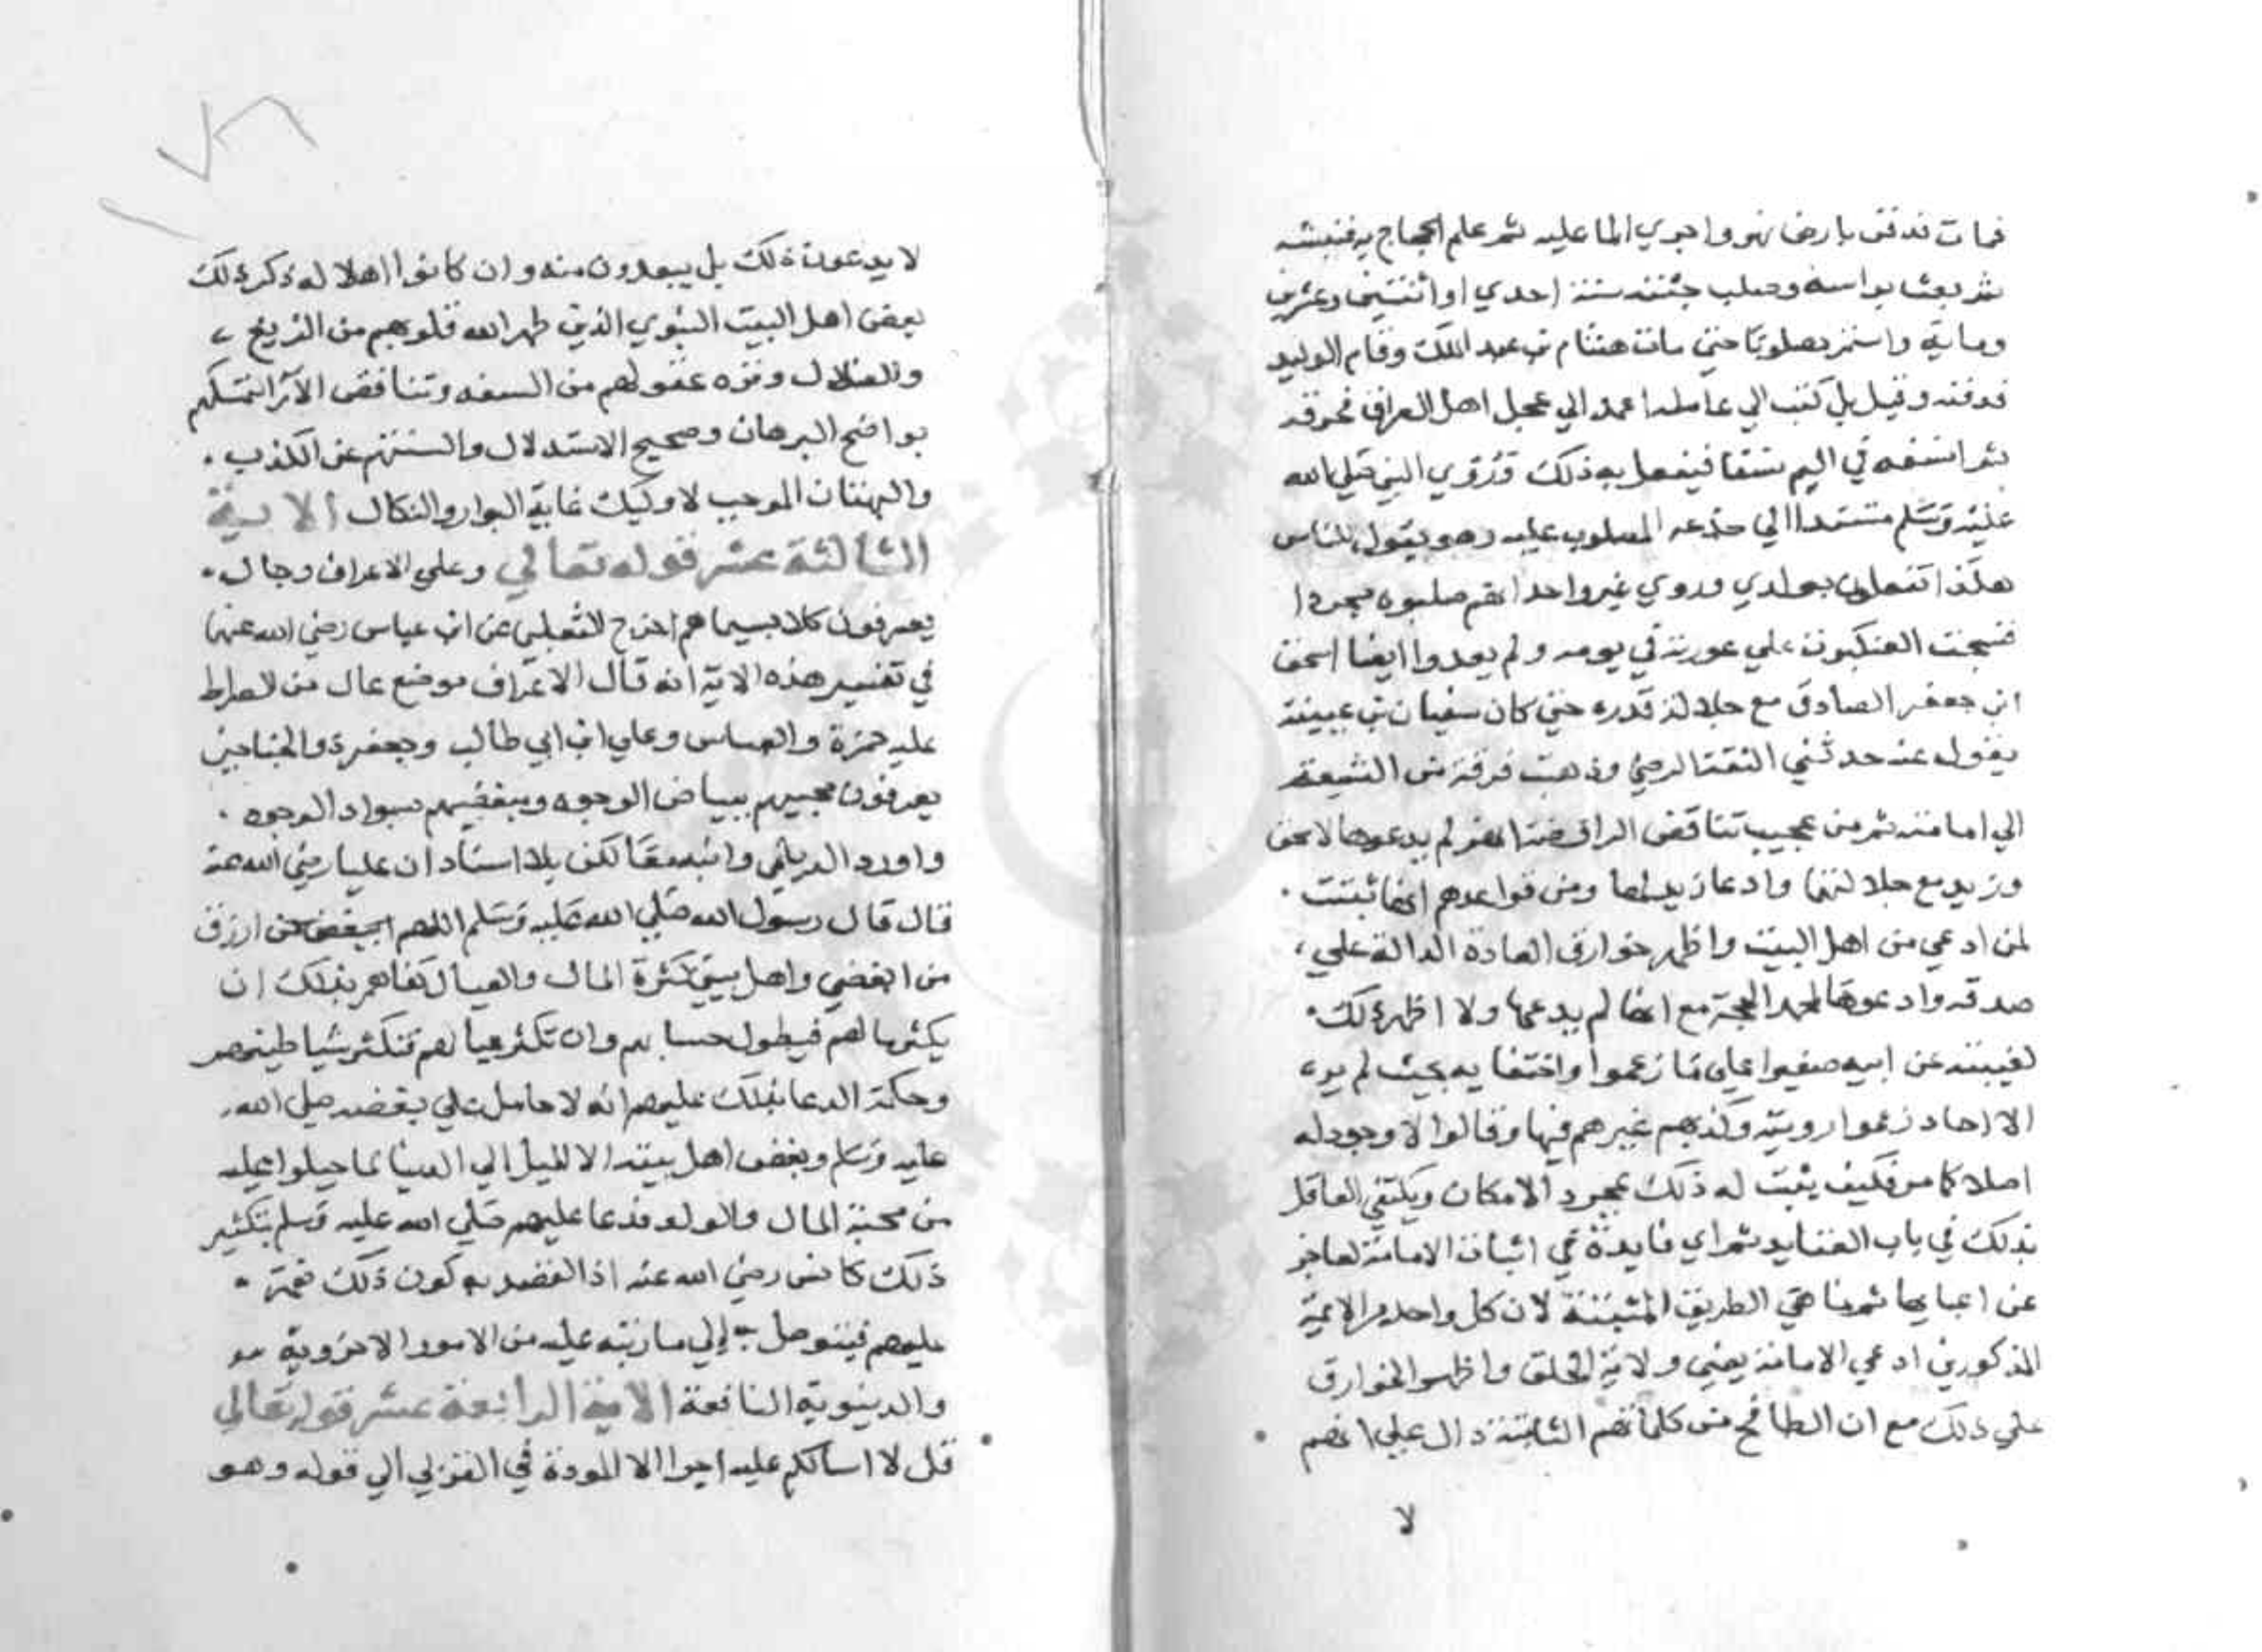 فمات فدفن بارض نهر واجري الما عليه ثم علم الحجاج به فنبشه
ثم بعث براسه وصلب جثته سنة احدي او اثنتين وعشرين
وماية واستمر مصلوبا حتي مات هشام بن عبد الملك وقام الوليد
فدفنه وقيل بل كتب الي عامله اعمد الي عجل اهل العراق فحرقه
ثم انسفه في اليم نسفا ففعل به ذلك ورؤي النبي صلي الله
عليه وسلم مستندا الي جذعه المصلوب عليه وهو يقول للناس
هكذا تفعلون بولدي وروي غير واحد انهم صلبوه مجردا
فنسجت العنكبوت علي عورته في يومه ولم يعدوا ايضا اسحق
ابن جعفر الصادق مع جلالة قدره حتي كان سفيان بن عيينة
يقول عنه حدثني الثقة الرضي وذهبت فرقة من الشيعة
الي امامته ثم من عجيب تناقض الرافضة انهم لم يدعوها لاسحق
وزيد مع جلالتهما وادعا زيد لها ومن قواعدهم انها تثبت
لمن ادعي من اهل البيت واظهر خوارق العادة الدالة علي
صدقه وادعوها لمحمد الحجة مع انه لم يدعها ولا اظهر ذلك
لغيبته عن ابيه صغيرا علي ما زعموا واختفايه بحيث لم يره
الا احاد زعموا رويته وكذبهم غيرهم فيها وقالوا لا وجود له
اصلا كما مر فكيف يثبت له ذلك بمجرد الامكان ويكتفي العاقل
بذلك في باب العقايد ثم اي فايدة في اثبات الامامة لعاجز
عن اعبايها ثم ما هي الطريق المثبتة لان كل واحد من الايمة
المذكورين ادعي الامامة يعني ولاية الخلق واظهر الخوارق
علي ذلك مع ان الطافح من كلماتهم الثابتة دال علي انهم
لا
لا يدعون ذلك بل يبعدون منه وان كانوا اهلا له ذكر ذلك
بعض اهل البيت النبوي الذين طهر الله قلوبهم من الزيغ
والضلال ونزه عقولهم من السفه وتناقض الآرا لتمسكهم
بواضح البرهان وصحيح الاستدلال والسنتهم عن الكذب
والبهتان الموجب لاوليك غاية البوار والنكال الاية
الثالثة عشر قوله تعالي وعلي الاعراف رجال
يعرفون كلا بسيماهم اخرج الثعلبي عن ابن عباس رضي الله عنهما
في تفسير هذه الاية انه قال الاعراف موضع عال من الصراط
عليه حمزة والعباس وعلي ابن ابي طالب وجعفر ذو الجناحين
يعرفون محبيهم ببياض الوجوه ومبغضيهم بسواد الوجوه
واورد الديلمي وابنه معا لكن بلا اسناد ان عليا رضي الله عنه
قال قال رسول الله صلي الله عليه وسلم اللهم ارزق
من ابغضني واهل بيتي كثرة المال والعيال كفاهم بذلك ان
يكثر مالهم فيطول حسابهم وان تكثر عيالهم فتكثر شياطينهم
وحكمة الدعا بذلك عليهم انه لا حامل علي بغضه صلي الله
عليه وسلم وبغض اهل بيته الا الميل الي الدنيا لما جبلوا عليه
من محبة المال والولد فدعا عليهم صلي الله عليه وسلم بتكثير
ذلك كانس رضي الله عنه اذ القصد به كون ذلك نعمة
عليهم فيتوصل به الي ما رتبه عليه من الامور الاخروية
والدنيوية النافعة الاية الرابعة عشر قوله تعالي
قل لا اسالكم عليه اجرا الا المودة في القربي الي قوله وهو